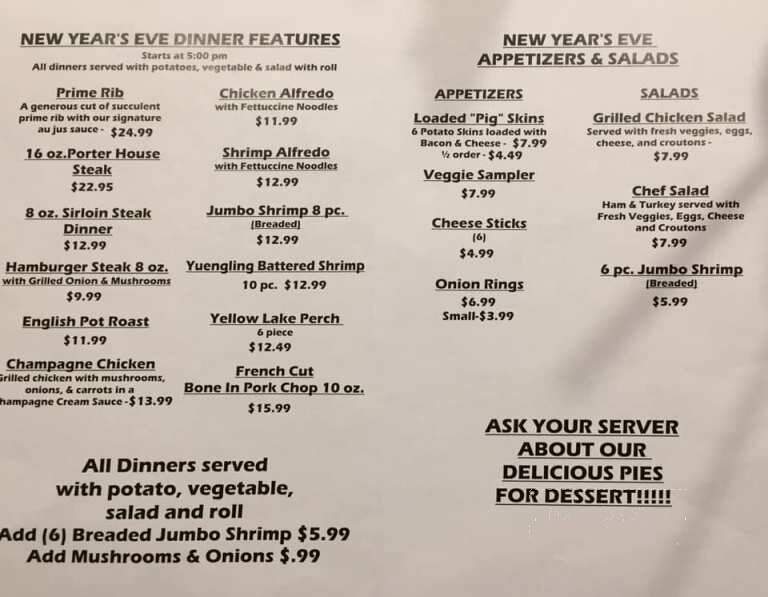 NEW YEAR'S EVE DINNER FEATURES
Starts at 5:00 pm
All dinners served with potatoes, vegetable & salad with roll
Prime Rib
A generous cut of succulent
prime rib with our signature
au jus sauce - $24.99
16 oz.Porter House
Steak
$22.95
8 oz. Sirloin Steak
Dinner
$12.99
Hamburger Steak 8 oz.
with Grilled Onion & Mushrooms
$9.99
English Pot Roast
$11.99
Champagne Chicken
Grilled chicken with mushrooms,
onions, & carrots in a
hampagne Cream Sauce -$13.99
Chicken Alfredo
with Fettuccine Noodles
$11.99
Shrimp Alfredo
with Fettuccine Noodles
$12.99
Jumbo Shrimp 8 pc.
(Breaded)
$12.99
Yuengling Battered Shrimp
10 pc. $12.99
Yellow Lake Perch
6 piece
$12.49
French Cut
Bone In Pork Chop 10 oz.
$15.99
All Dinners served
with potato, vegetable,
salad and roll
Add (6) Breaded Jumbo Shrimp $5.99
Add Mushrooms & Onions $.99
NEW YEAR'S EVE
APPETIZERS & SALADS
APPETIZERS
Loaded "Pig" Skins
6 Potato Skins loaded with
Bacon & Cheese - $7.99
½ order - $4.49
Veggie Sampler
$7.99
Cheese Sticks
(6)
$4.99
Onion Rings
$6.99
Small-$3.99
SALADS
Grilled Chicken Salad
Served with fresh veggies, eggs,
cheese, and croutons -
$7.99
Chef Salad
Ham & Turkey served with
Fresh Veggies, Eggs, Cheese
and Croutons
$7.99
6 pc. Jumbo Shrimp
(Breaded)
$5.99
ASK YOUR SERVER
ABOUT OUR
DELICIOUS PIES
FOR DESSERT!!!!!